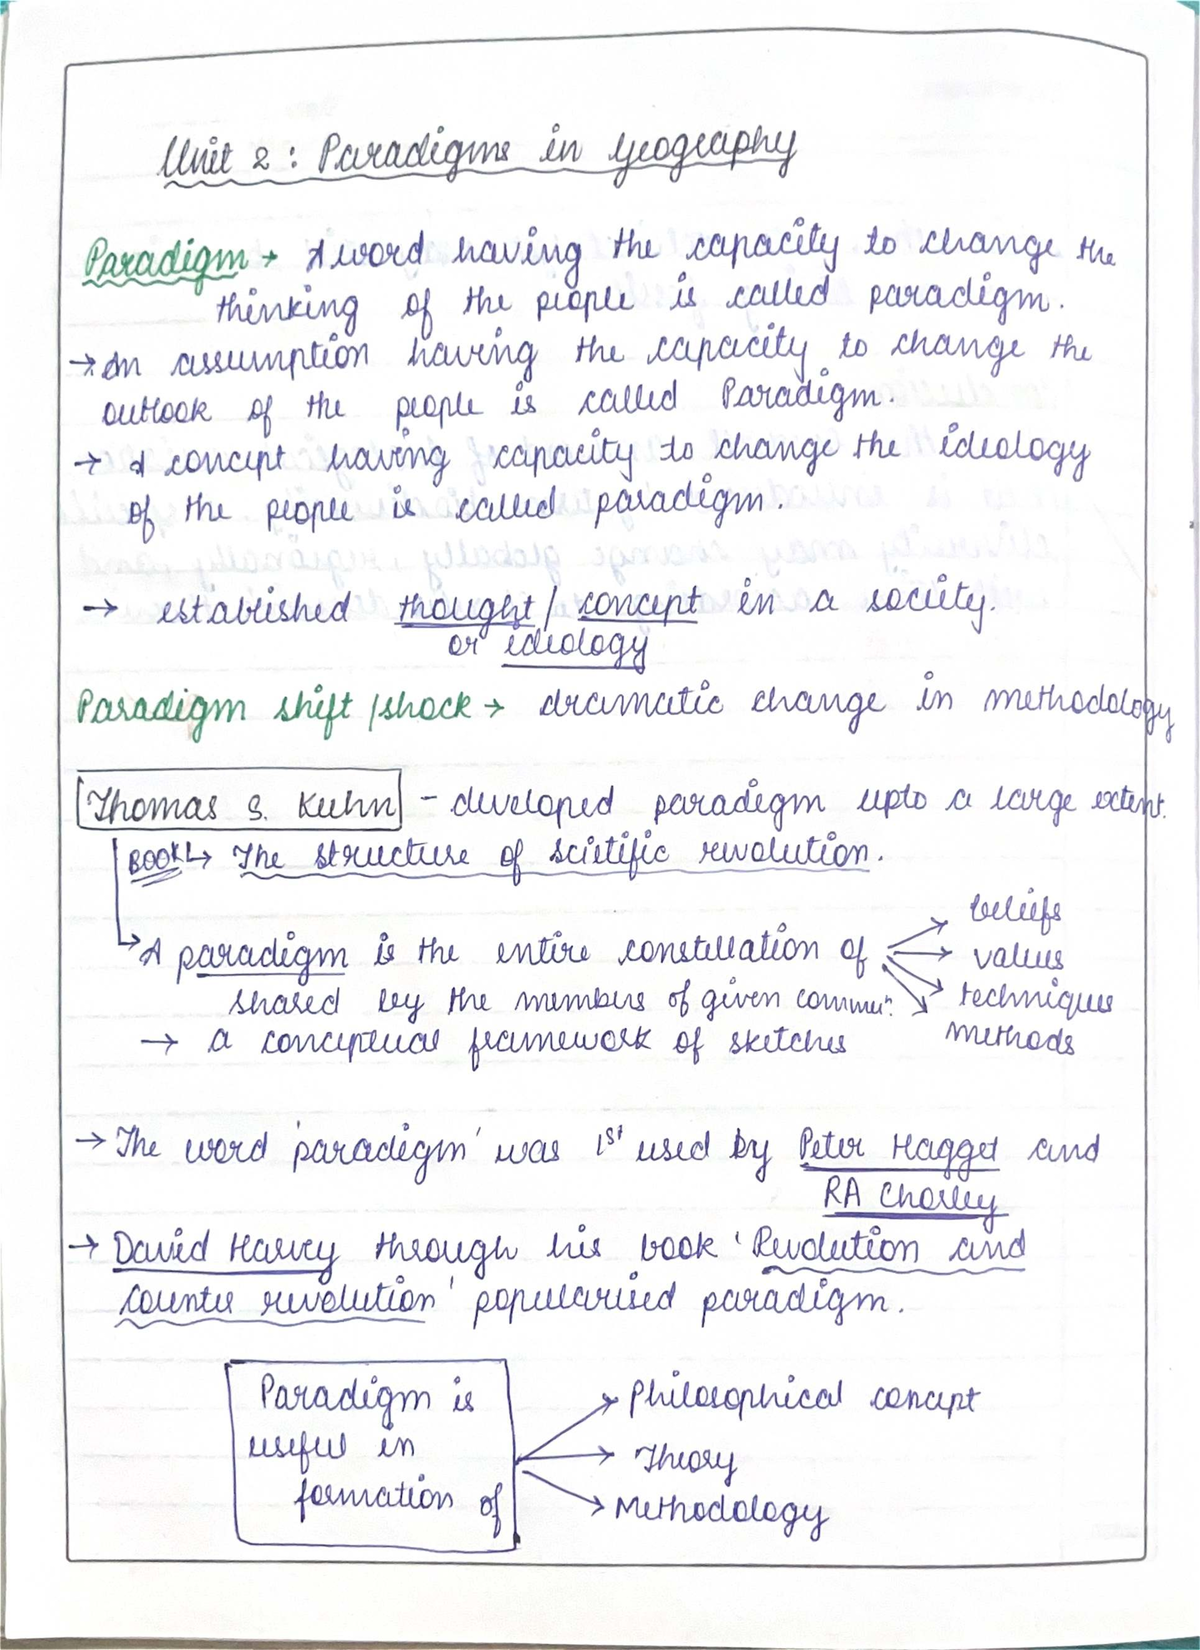 Unit 2 : Paradigms in Geography
Paradigm → A word having the capacity to change the
thinking of the people is called paradigm.
→ An assumption having the capacity to change the
outlook of the people is called Paradigm.
→ A concept having capacity to change the ideology
of the people is called paradigm.
→ established thought / concept in a society.
or ideology
Paradigm shift /shock → dramatic change in methodology
Thomas S. Kuhn - developed paradigm upto a large extent.
BOOK → The structure of scietific revolution.
→ A paradigm is the entire constellation of → beliefs
→ values
shared by the members of given commun. → techniques
→ methods
→ a conceptual framework of sketches
→ The word 'paradigm' was 1st used by Peter Hagget and
RA Chorley
→ David Harvey through his book 'Revolution and
counter revolution' popularised paradigm.
Paradigm is → Philosophical concept
useful in → Theory
formation of → Methodology